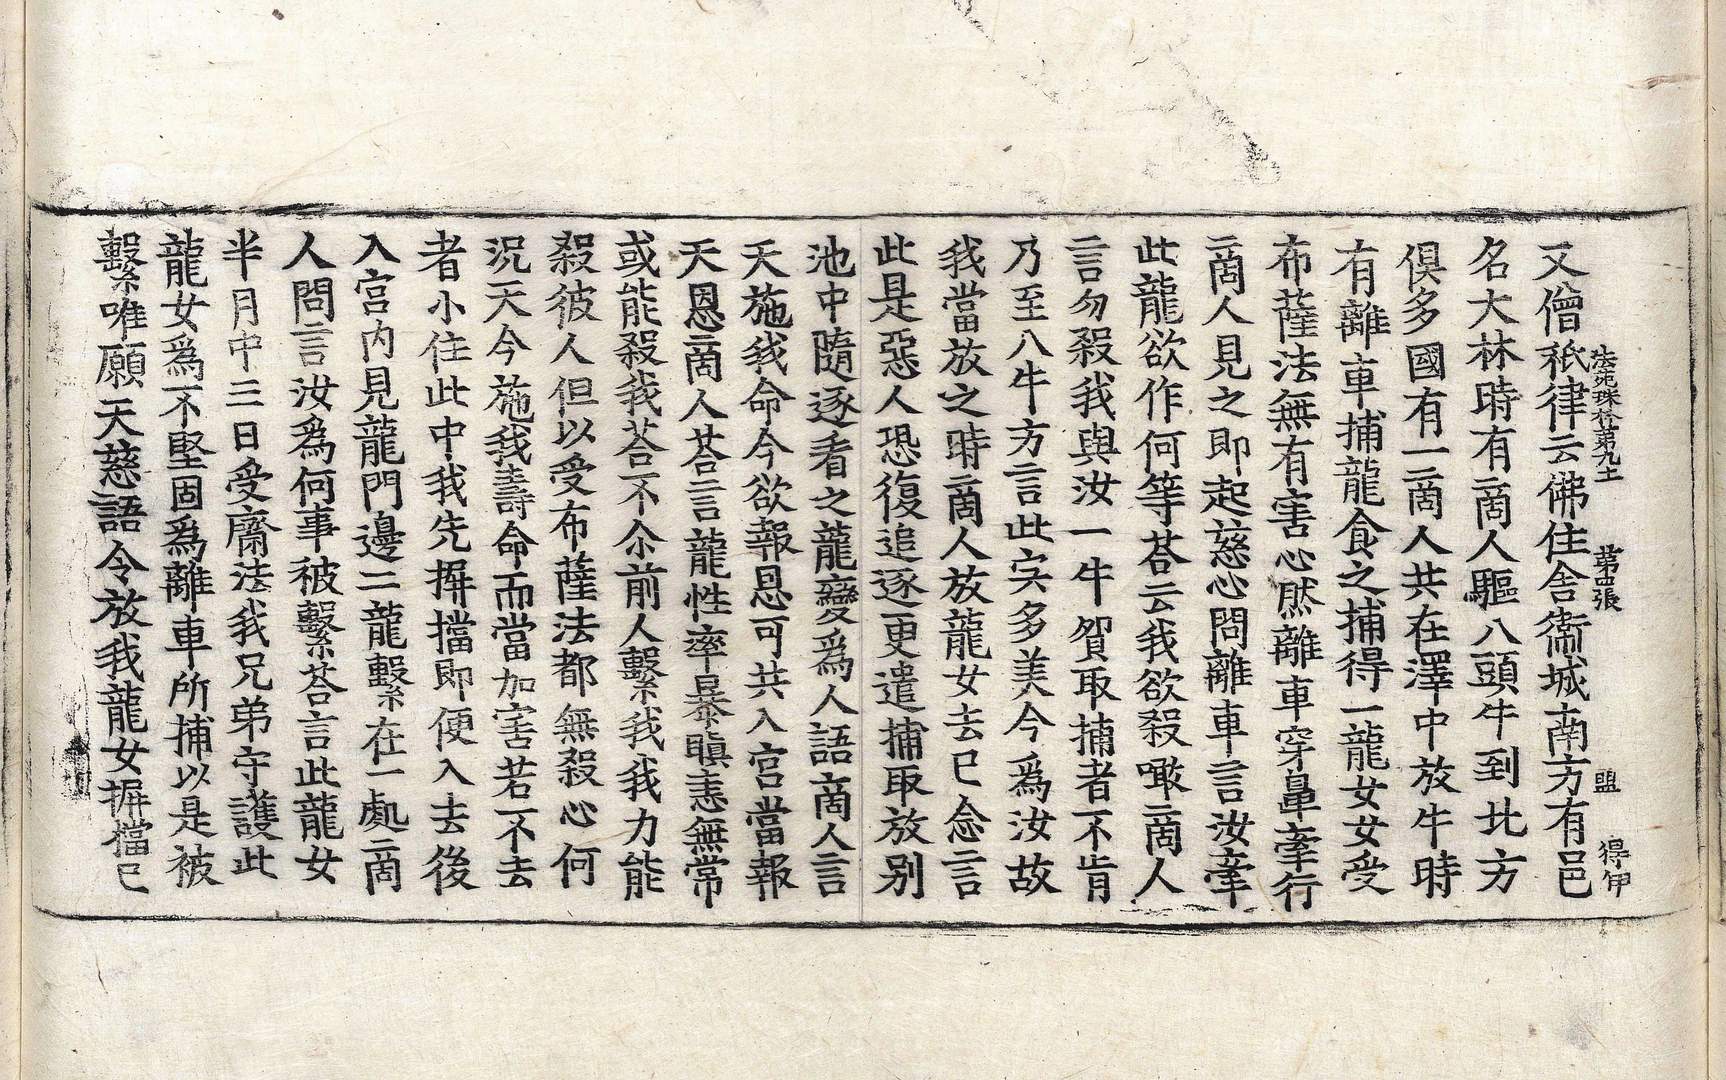 法苑珠林卷第九十一 第十四張 盟 得伊
又僧祇律云佛住舍衛城南方有邑
名大林時有商人驅八頭牛到北方
俱多國有一商人共在澤中放牛時
有離車捕龍食之捕得一龍女女受
布薩法無有害心然離車穿鼻牽行
商人見之即起慈心問離車言汝牽
此龍欲作何等荅云我欲殺噉商人
言勿殺我與汝一牛貿取捕者不肯
乃至八牛方言此宍多美今爲汝故
我當放之時商人放龍女去已念言
此是惡人恐復追逐更遣捕取放別
池中隨逐看之龍變爲人語商人言
天施我命今欲報恩可共入宮當報
天恩商人荅言龍性率暴瞋恚無常
或能殺我荅不尒前人繫我我力能
殺彼人但以受布薩法都無殺心何
況天今施我壽命而當加害若不去
者小住此中我先摒擋即便入去後
入宮內見龍門邊二龍繫在一處商
人問言汝爲何事被繫荅言此龍女
半月中三日受齋法我兄弟守護此
龍女爲不堅固爲離車所捕以是被
繫唯願天慈語令放我龍女摒擋已